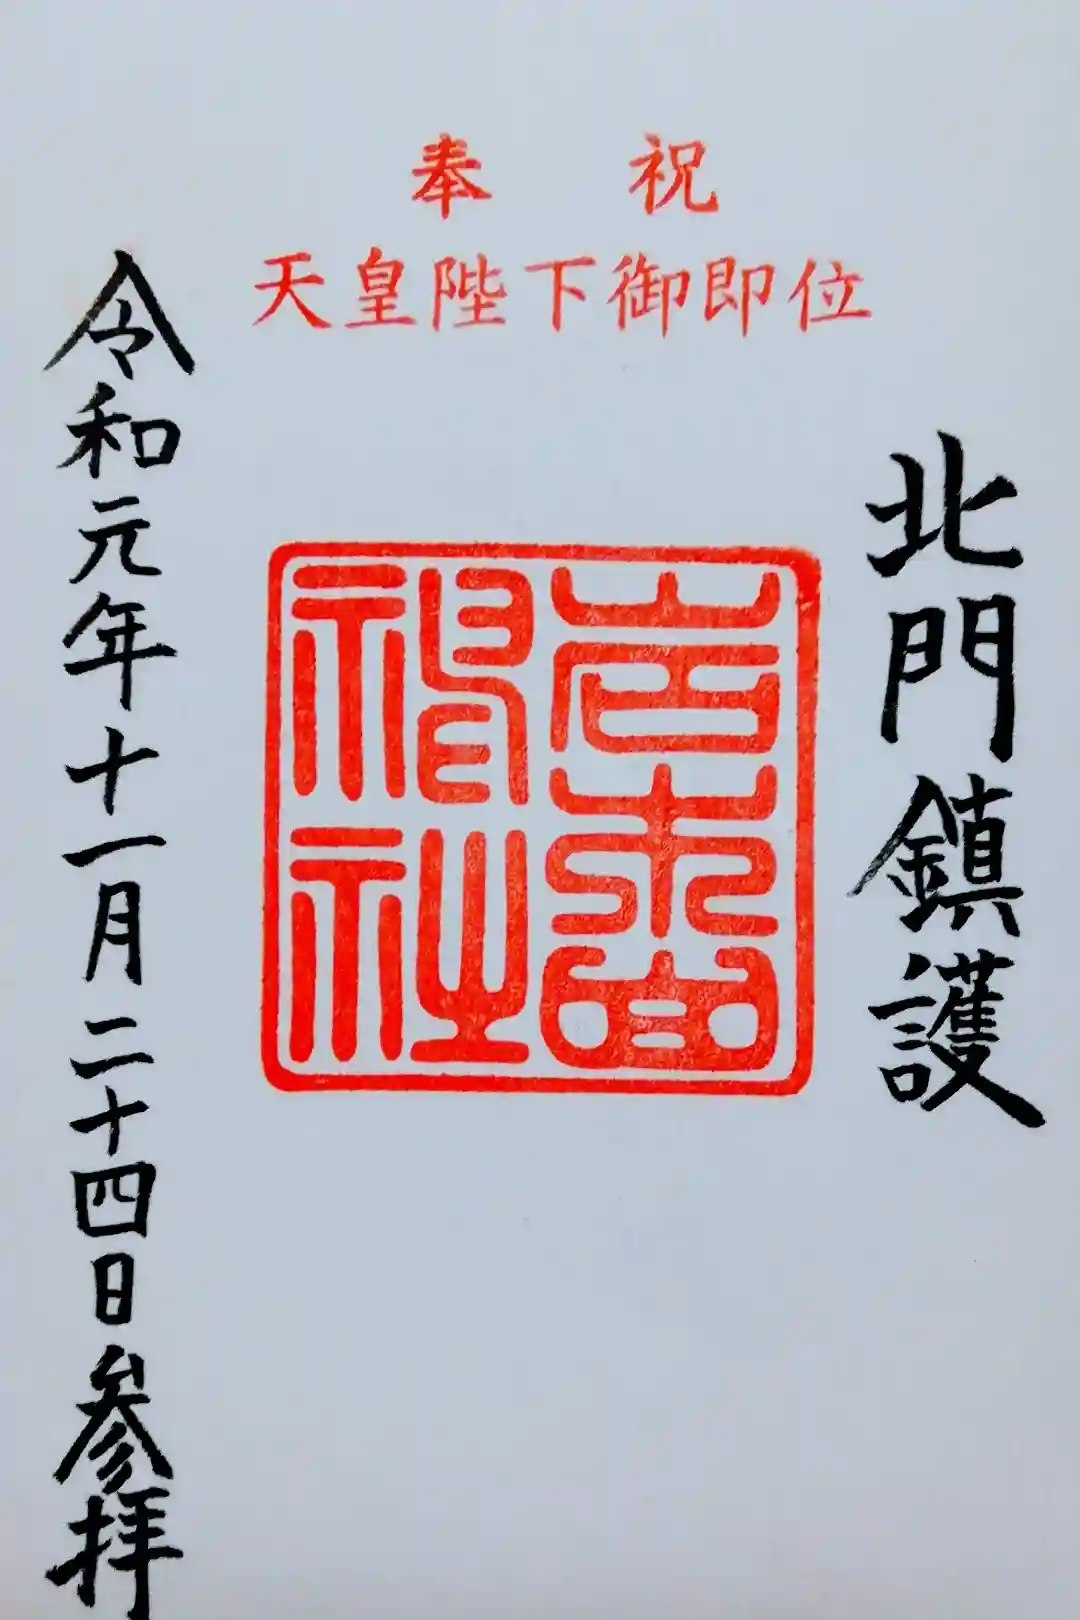 奉祝
天皇陛下御即位
北門鎮護
岩木山
神社
令和元年十一月二十四日参拝